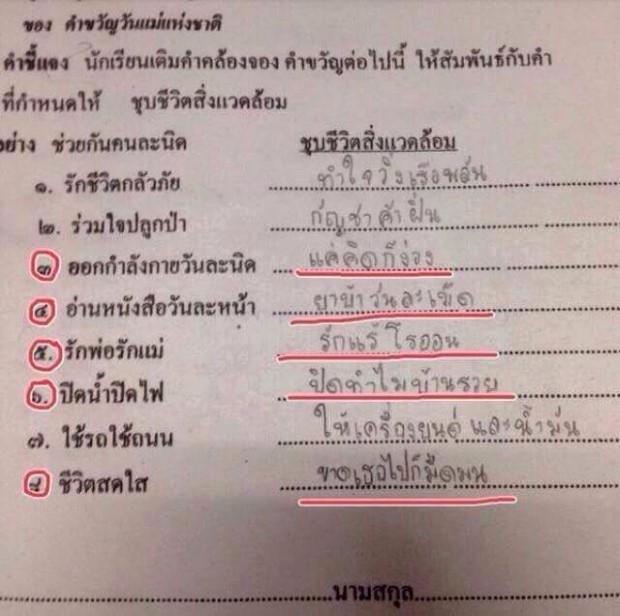 ของ คำขวัญวันแม่แห่งชาติ
คำชี้แจง นักเรียนเติมคำคล้องจอง คำขวัญต่อไปนี้ ให้สัมพันธ์กับคำ
ที่กำหนดให้ ชุบชีวิตสิ่งแวดล้อม
อย่าง ช่วยกันคนละนิด ชุบชีวิตสิ่งแวดล้อม
๑. รักชีวิตกลัวภัย ทำใจวิ่งเรือพลัน
๒. ร่วมใจปลูกป่า กัญชาค้าฝิ่น
๓ ออกกำลังกายวันละนิด แค่คิดก็ง่วง
๔. อ่านหนังสือวันละหน้า ยาบ้าวันละเม็ด
๕. รักพ่อรักแม่ รักแร้ โรออน
๖. ปิดน้ำปิดไฟ ปิดทำไมบ้านรวย
๗. ใช้รถใช้ถนน ให้เครื่องยนต์ และน้ำมัน
๘ ชีวิตสดใส ขาดเธอไปก็มืดมน
นามสกุล